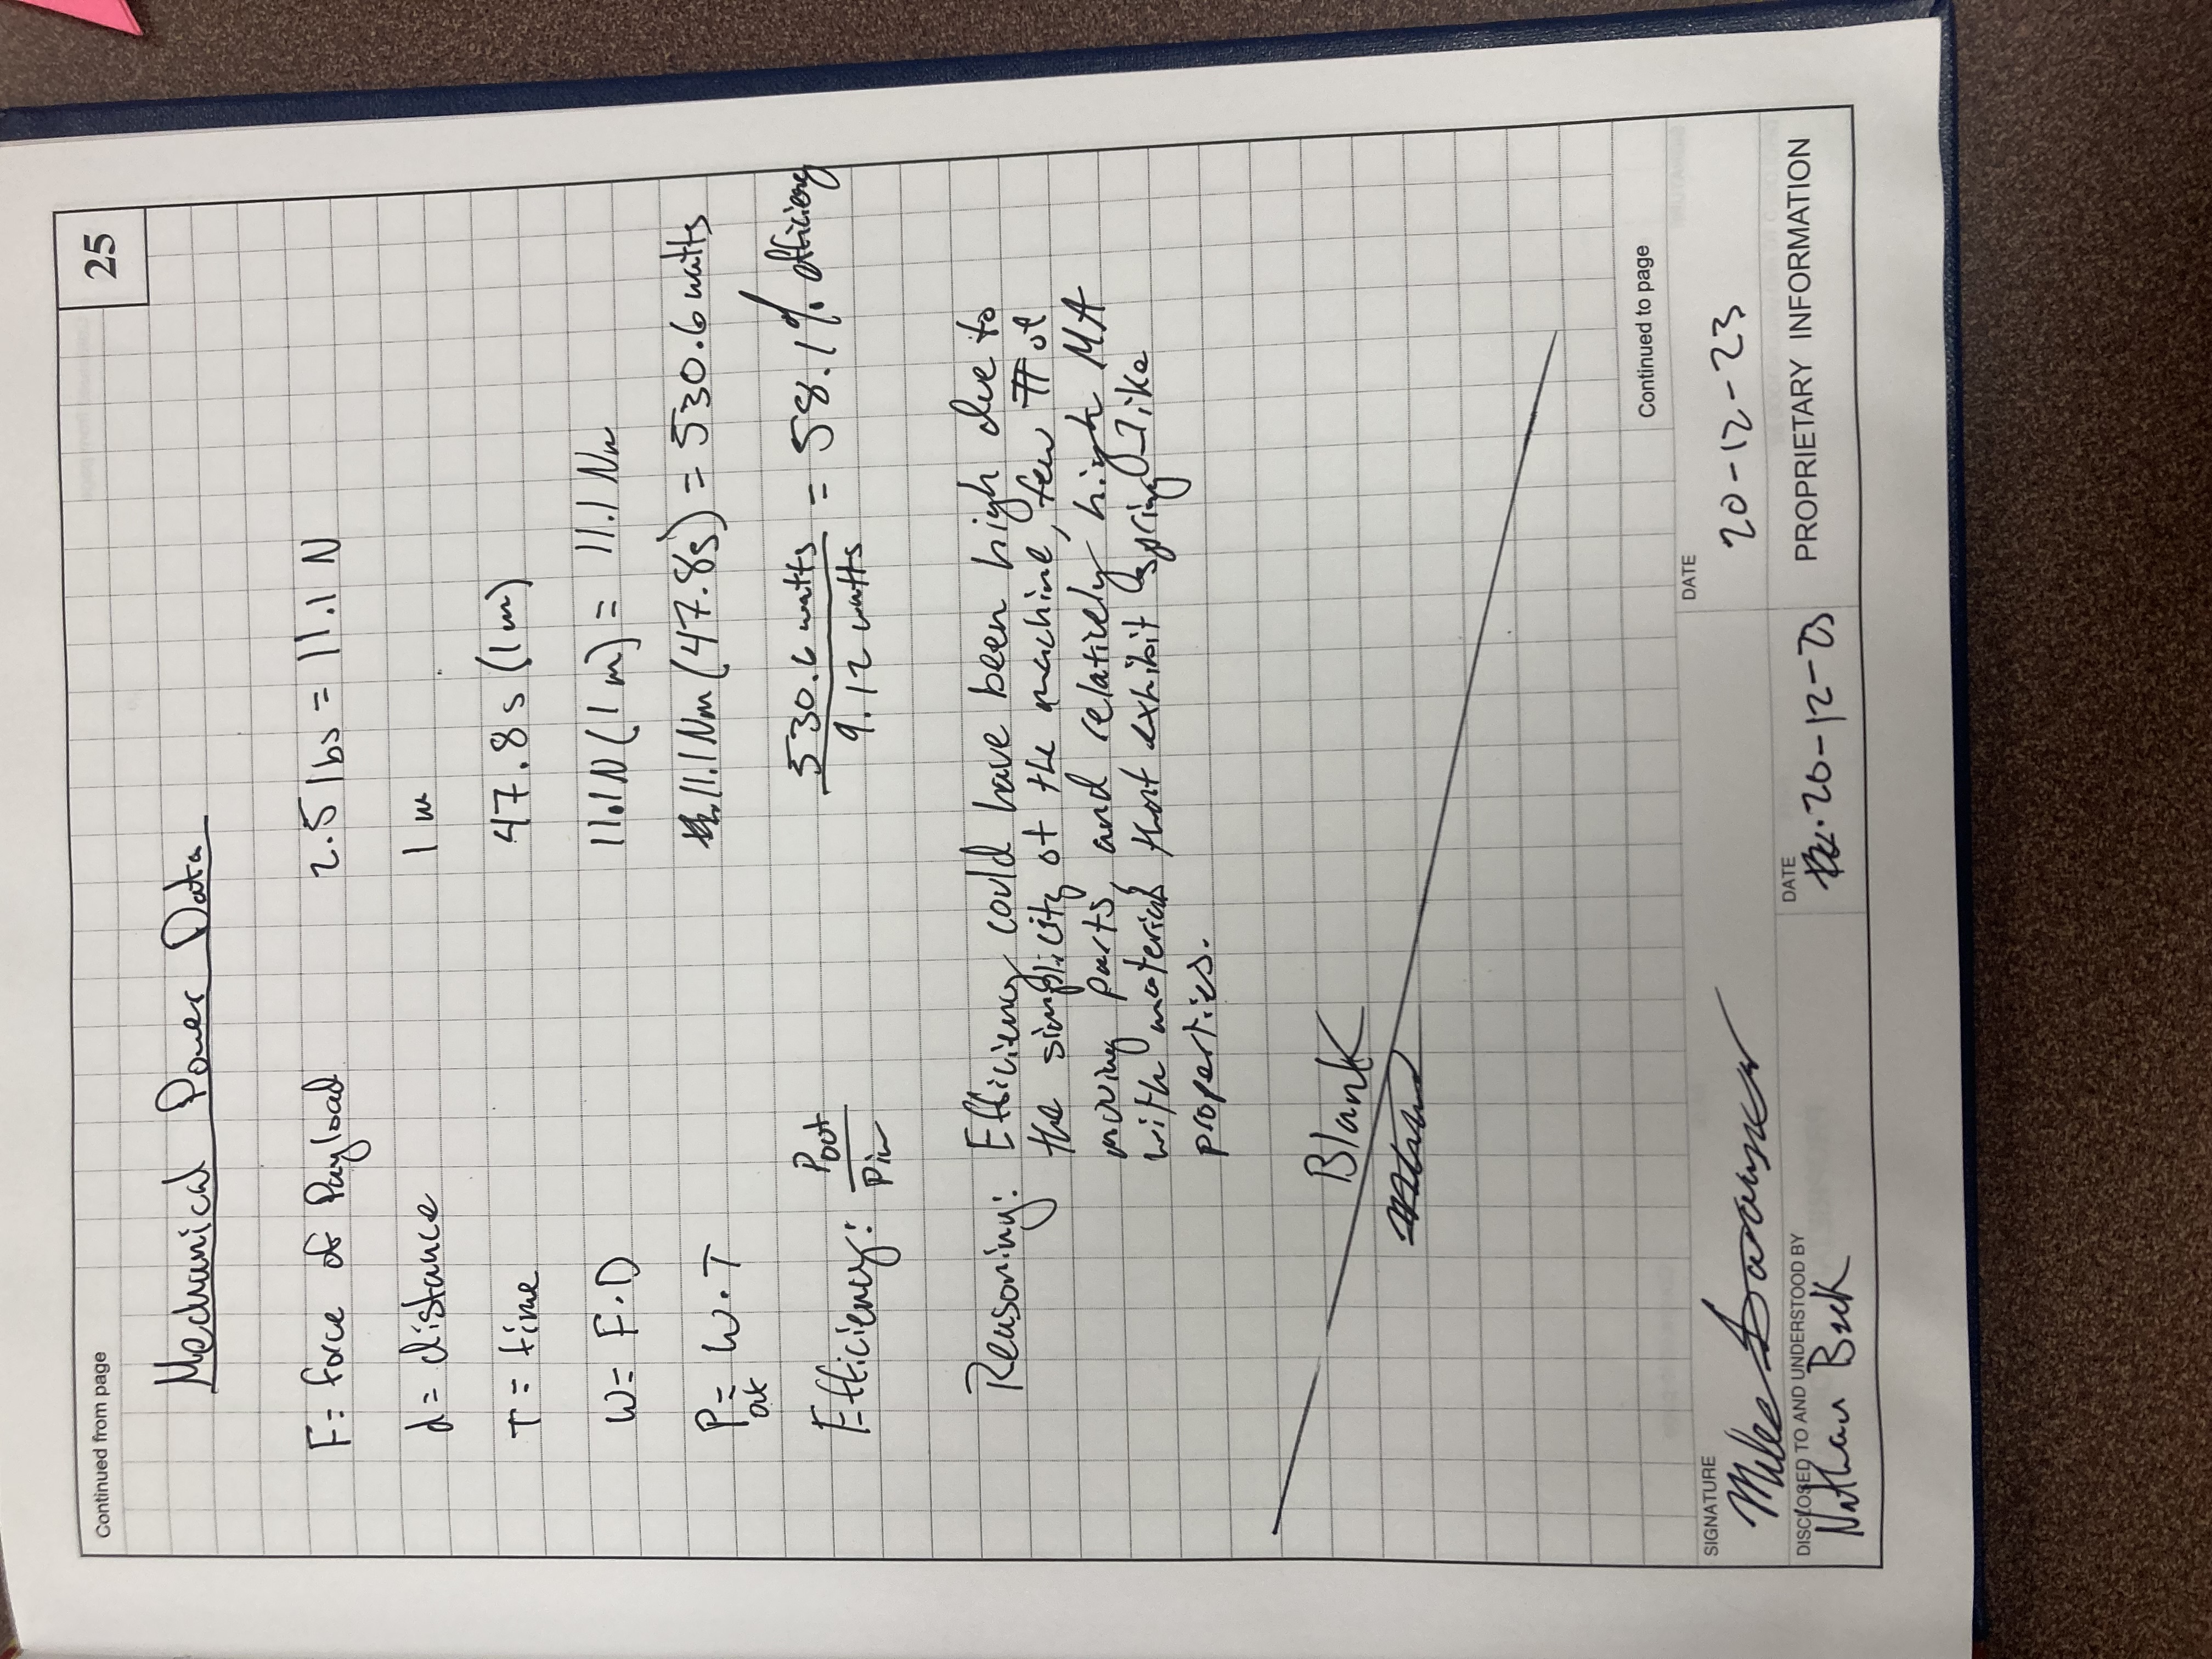 Continued from page
25
Mechanical Power Data
F= force of Payload 2.5 lbs = 11.1 N
d= distance 1 m
T= time 47.8s (1m)
W= F·D 11.1N (1 m) = 11.1 Nm
Pout= W·T 11.1 Nm (47.8s) = 530.6 watts
Efficiency: Pout/Pin 530.6 watts/9.12 watts = 58.1% efficiency
Reasoning: Efficiency could have been high due to
the simplicity of the machine, few # of
moving parts, and relatively high MA
with material that exhibit spring-like
properties.
Blank
Continued to page
SIGNATURE
DATE
20-12-23
DISCLOSED TO AND UNDERSTOOD BY
Nathan Beck
DATE
20-12-23
PROPRIETARY INFORMATION